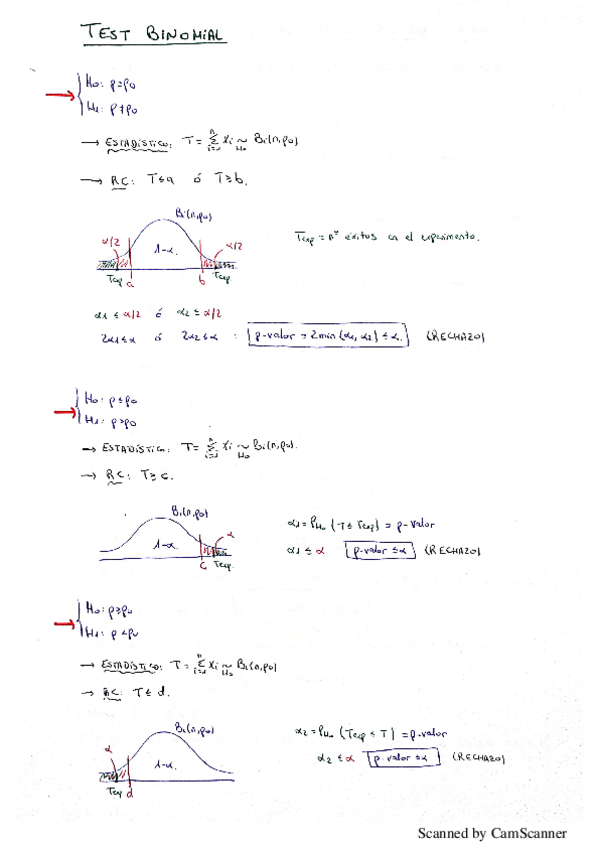 TEST BINOMIAL
H₀: p=p₀
H₁: p≠p₀
→ ESTADÍSTICO: T = Σⁿᵢ₌₁ Xᵢ ~H₀ Bi(n,p₀)
→ RC: T≤a ó T≥b.
Bi(n,p₀)
α/2 1-α. α/2
Texp a b Texp
Texp = nº éxitos en el experimento.
α1 ≤ α/2 ó α2 ≤ α/2
2α1≤α ó 2α2≤α : p-valor = 2min(α1,α2) ≤ α. (RECHAZO)
H₀: p≤p₀
H₁: p>p₀
→ ESTADÍSTICO: T = Σⁿᵢ₌₁ Xᵢ ~H₀ Bi(n,p₀).
→ RC: T≥c.
Bi(n,p₀)
1-α. α
c Texp.
α1 = PH₀ (T≤Texp) = p-valor
α1 ≤ α p-valor ≤α (RECHAZO)
H₀: p≥p₀
H₁: p<p₀
→ ESTADÍSTICO: T = Σⁿᵢ₌₁ Xᵢ ~H₀ Bi(n,p₀)
→ RC: T≤d.
Bi(n,p₀)
α 1-α.
Texp d
α2 = PH₀ (Texp ≤ T) = p-valor
α2 ≤α p-valor ≤α (RECHAZO)
Scanned by CamScanner